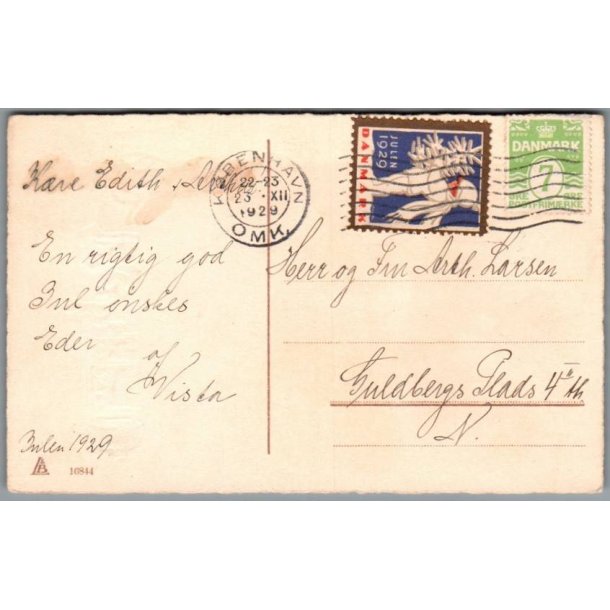 JULEN
1929
DANMARK
DANMARK
7
ØRE ØRE
POSTFRIMÆRKE
KØBENHAVN
22-23
23 XII
1929
OMK.
Kære Edith
En rigtig god
Jul ønskes
Eder
af
Vista
Julen 1929
16844
Herr og Fru Arth. Larsen
Guldbergs Plads 4 II th
N.